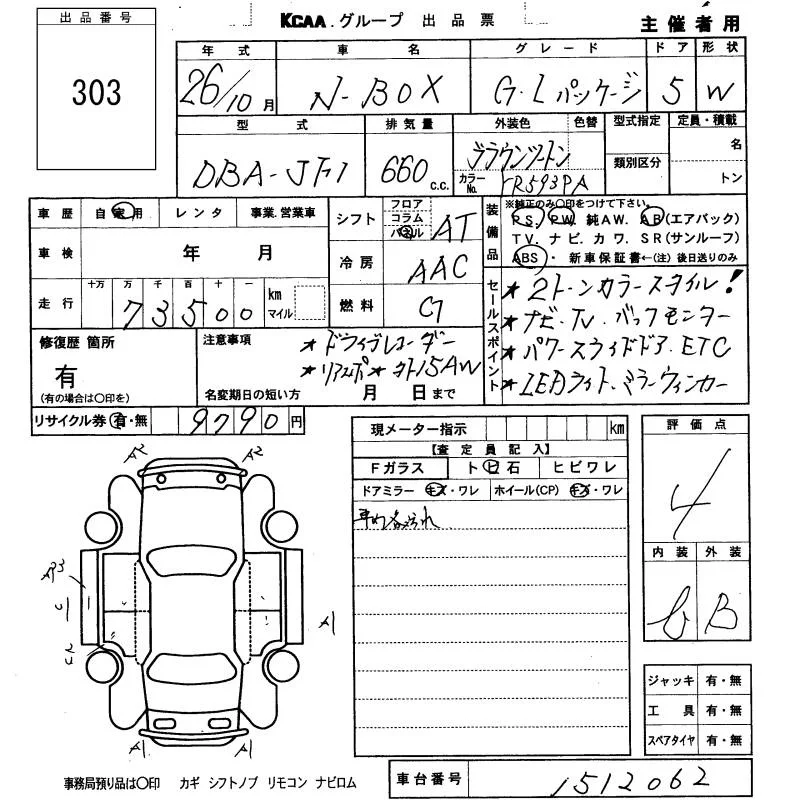 出品番号
303
KCAA.グループ 出品票
主催者用
年式 車名 グレード ドア 形状
26/10月 N-BOX G・Lパッケージ 5 W
型式 排気量 外装色 色替 型式指定 定員・積載
DBA-JF1 660c.c. ブラウンツートン 名
カラーNo. YR593PA 類別区分 トン
車歴 自家用 レンタ 事業.営業車
車検 年 月
走行 十万 万 千 百 十 一 km マイル
73500
シフト フロア コラム パネル AT
冷房 AAC
燃料 G
装備品 ※純正のみ〇印をつけて下さい。
P.S. P.W. 純A.W. A.B(エアバック)
T.V. ナビ. カワ. S.R(サンルーフ)
ABS・新車保証書←(注)後日送りのみ
セールスポイント
★2トーンカラースタイル!
★ナビ・TV・バックモニター
★パワースライドドア.ETC
★LEDライト・ミラーウィンカー
修復歴 箇所
有
(有の場合は〇印を)
注意事項
★ドライブレコーダー
★リアスポ ★社外15AW
名変期日の短い方 月 日まで
リサイクル券 有・無 9790円
現メーター指示 km
【査定員記入】
Fガラス トビ石 ヒビワレ
ドアミラー キズ・ワレ ホイール(CP) キズ・ワレ
評価点
4
内装 外装
b B
A2 A2
A3
A1
A1 A1
ジャッキ 有・無
工具 有・無
スペアタイヤ 有・無
事務局預り品は〇印 カギ シフトノブ リモコン ナビロム
車台番号 1512062